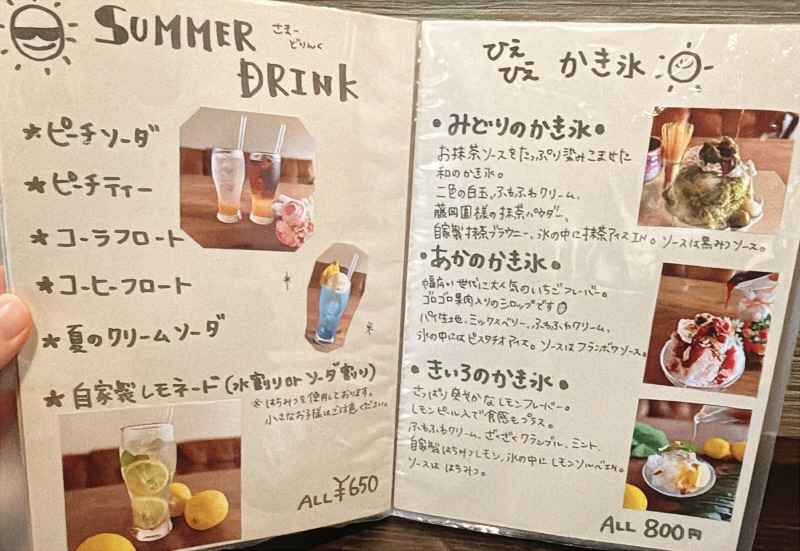 SUMMER
さまー
どりんく
DRINK
★ピーチソーダ
★ピーチティー
★コーラフロート
★コーヒーフロート
★夏のクリームソーダ
★自家製レモネード(水割りorソーダ割り)
※はちみつを使用しております。
小さなお子様はご注意ください。
ALL ¥650
ひえ
ひえ かき氷
•みどりのかき氷•
お抹茶ソースをたっぷり染みこませた
和のかき氷。
二色の白玉、ふわふわクリーム、
藤岡園様の抹茶パウダー、
自家製抹茶ブラウニー、氷の中に抹茶アイスIN。ソースは黒みつソース。
•あかのかき氷•
幅広い世代に大人気のいちごフレーバー。
ゴロゴロ果肉入りのシロップです
パイ生地、ミックスベリー、ふわふわクリーム、
氷の中にはピスタチオアイス。ソースはフランボワソース。
•きいろのかき氷•
さっぱり爽やかなレモンフレーバー。
レモンピール入で食感もプラス。
ふわふわクリーム、ざくざくクランブル、ミント、
自家製はちみつレモン、氷の中にレモンソルベIN。
ソースははちみつ。
ALL 800円